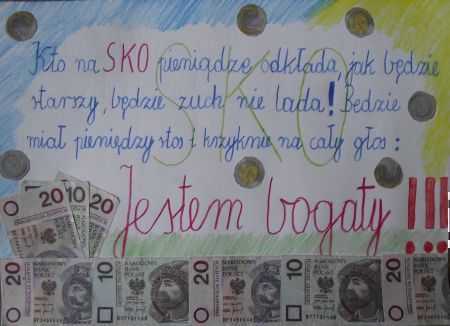 Kto na SKO pieniądze odkłada, jak będzie
starszy, będzie zuch nie lada! Będzie
miał pieniędzy stos i krzyknie na cały głos:
SKO
Jestem bogaty!!!
20 10 20
20 10 20 10 20
NARODOWY
BANK
POLSKI